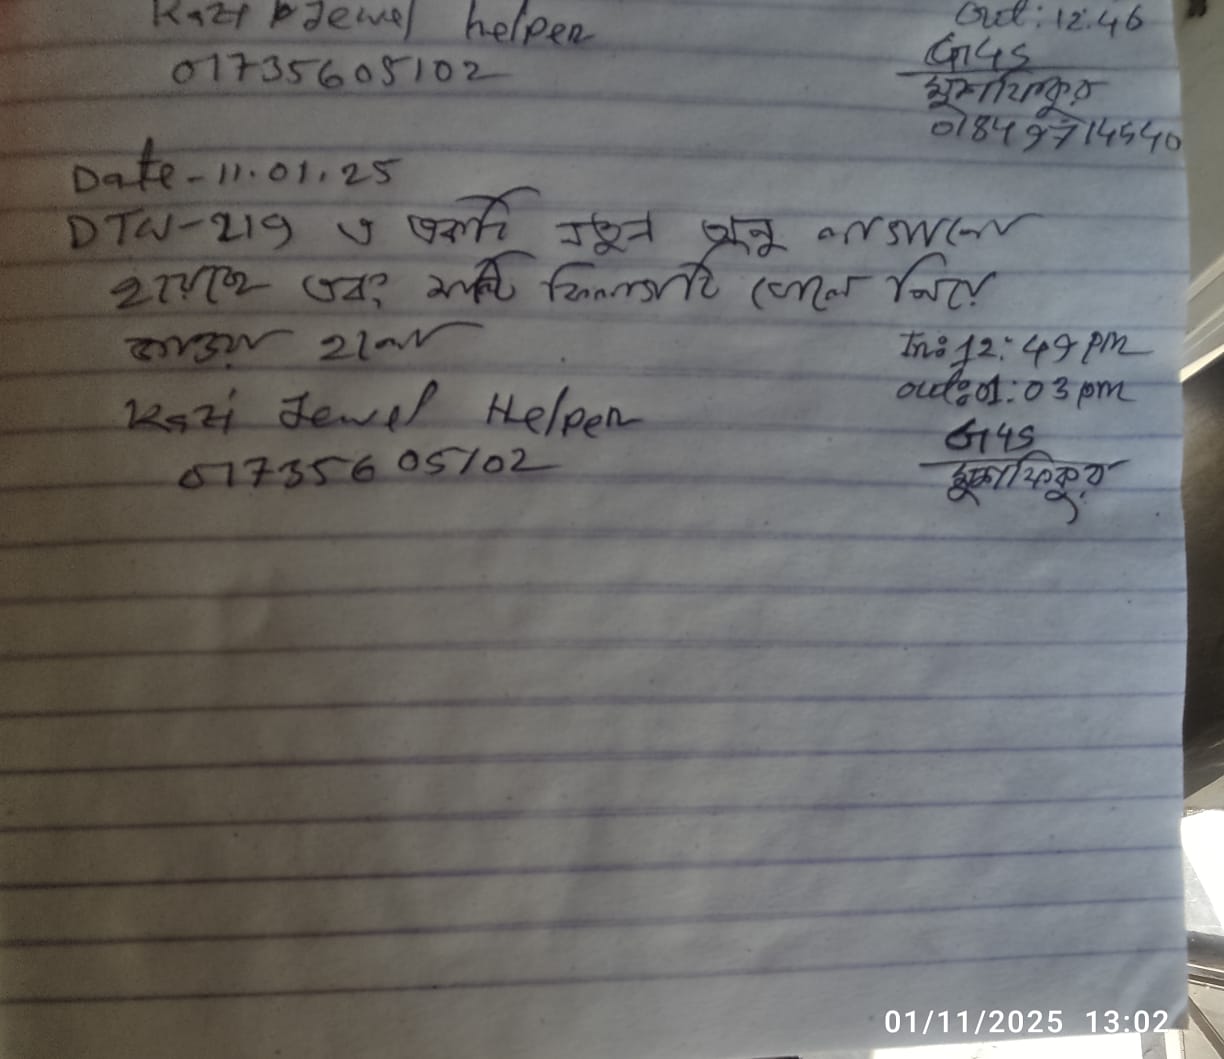 Kazi Jewel helper
01735605102
Out: 12:46
G4S
মুস্তাফিকুর
01849714540
Date - 11.01.25
DTW-219 এ একটি নতুন লাগানো
হয়েছে এবং খুলে নিয়ে
যাওয়া হলো
In: 12:49 pm
out: 01:03 pm
Kazi Jewel Helper
01735605102
G4S
মুস্তাফিকুর
01/11/2025 13:02